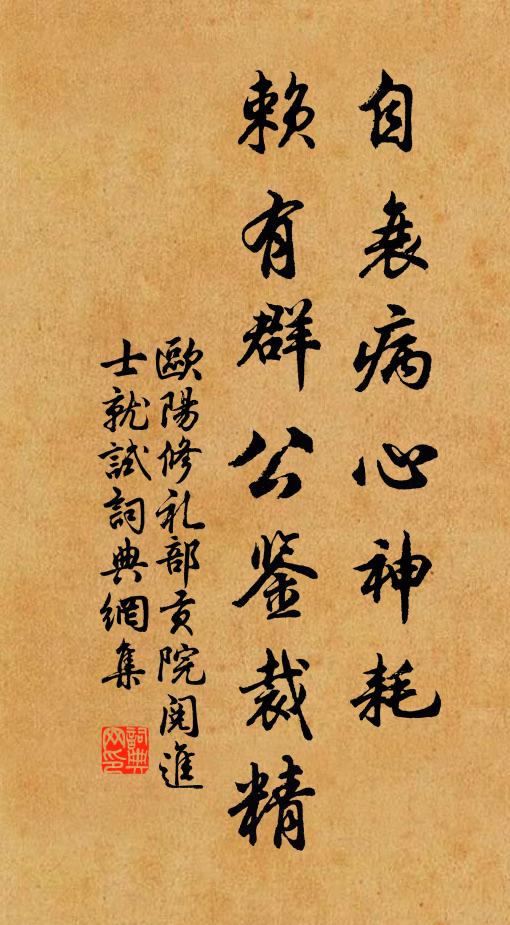 自衰病心神耗
賴有群公鉴裁精
歐陽修礼部贡院阅進
士就試詞典網集
詞典
网印